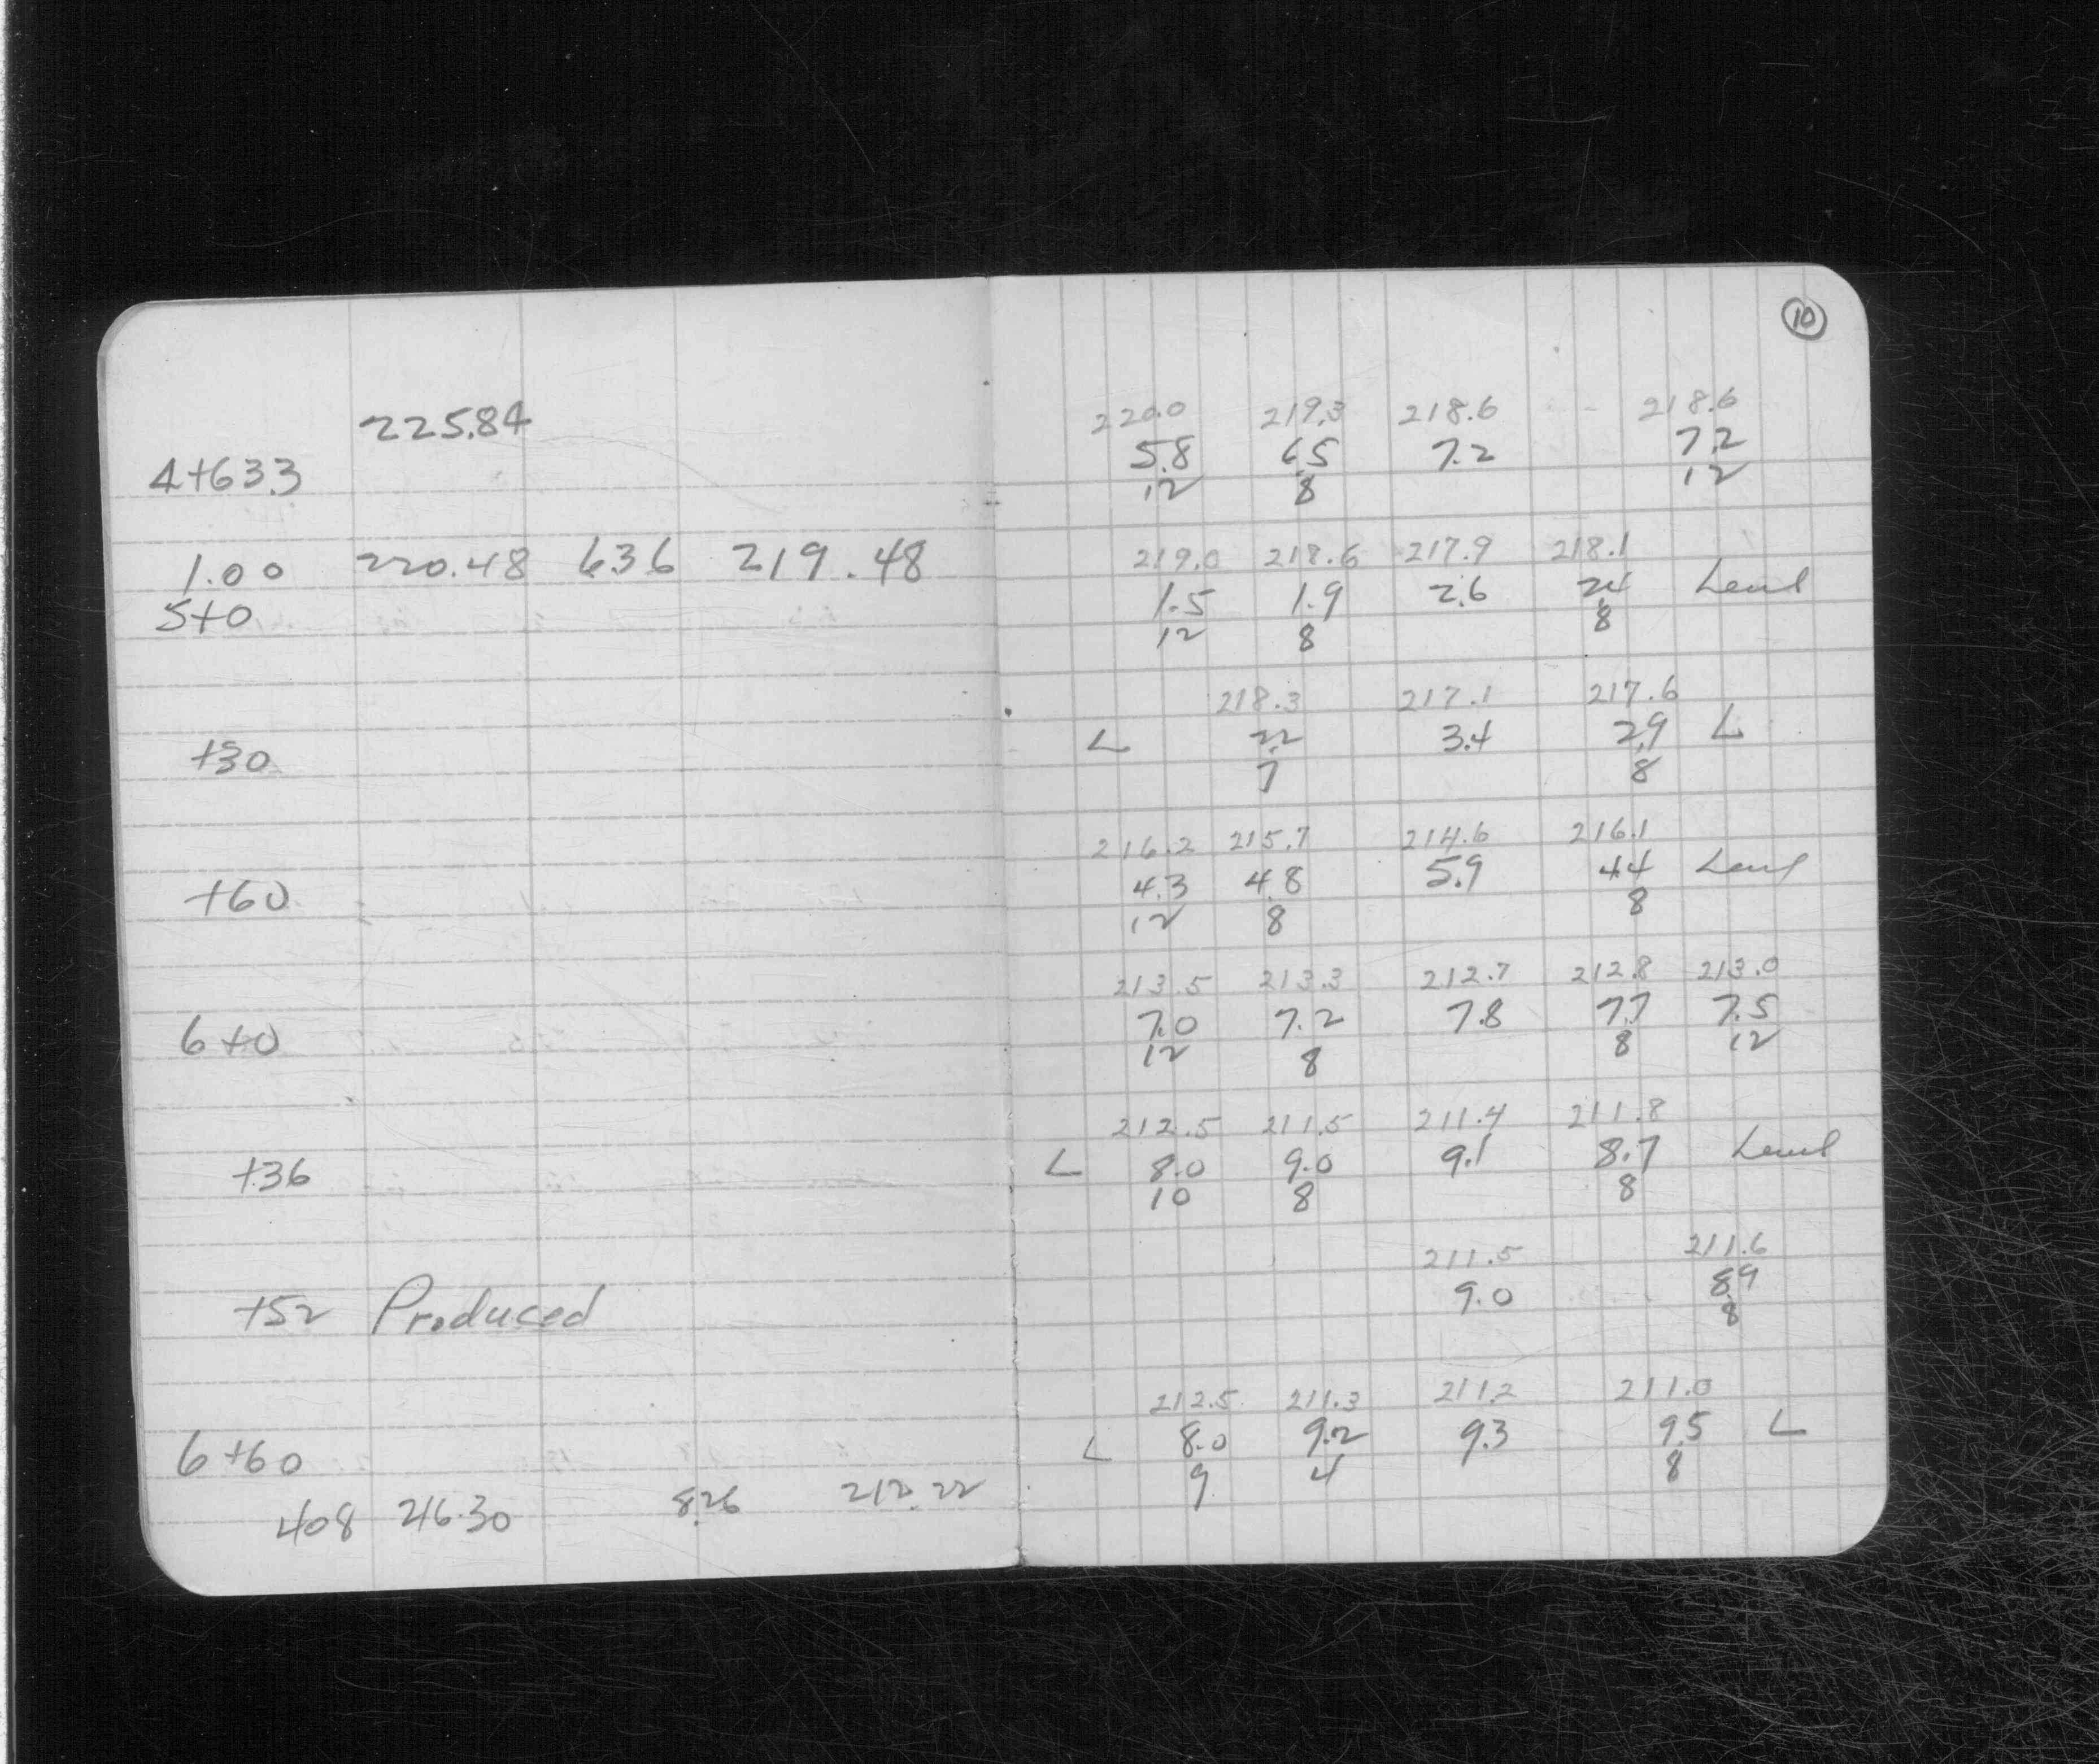 10
225.84
220.0 219.3 218.6 218.6
4+63.3 5.8 6.5 7.2 7.2
12 8 12
219.0 218.6 217.9 218.1
1.00 220.48 6.36 219.48 1.5 1.9 2.6 2.4 Level
5+0 12 8 8
218.3 217.1 217.6
+30 L 2.2 3.4 2.9 L
7 8
216.2 215.7 214.6 216.1
+60 4.3 4.8 5.9 4.4 Level
12 8 8
213.5 213.3 212.7 212.8 213.0
6+0 7.0 7.2 7.8 7.7 7.5
12 8 8 12
212.5 211.5 211.4 211.8
+36 L 8.0 9.0 9.1 8.7 Level
10 8 8
211.5 211.6
+52 Produced 9.0 8.9
8
212.5 211.3 211.2 211.0
6+60 L 8.0 9.2 9.3 9.5 L
9 4 8
408 216.30 8.26 212.22